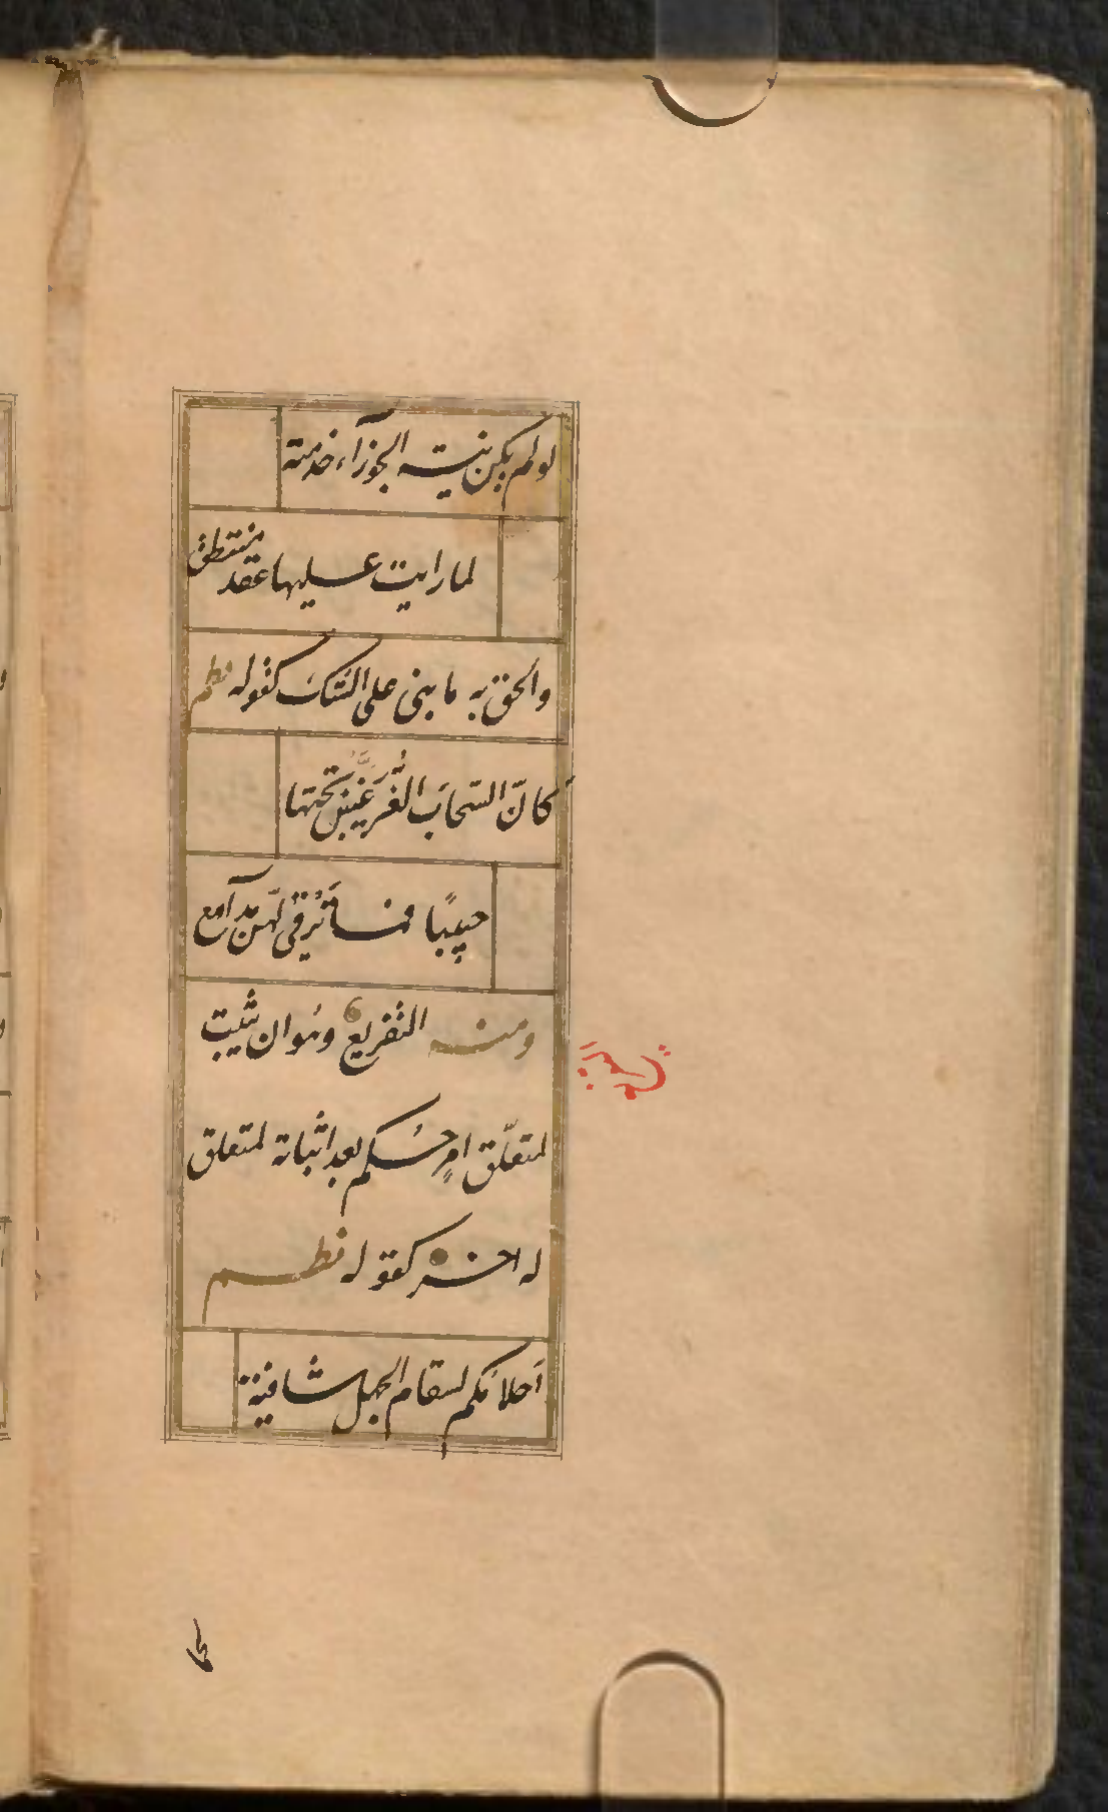 لو لم يكن نية الجوزآء خدمته
لما رايت عليها عقد منتطق
والحق به ما بنى على الشك كقوله نظم
كانّ السّحابَ الغُرّ غيّبن تحتها
حبيبًا فما تَرْقى لهنّ مدآمع
ومنه التفريع وهُوان يثبت
لمتعلّق امرٍ حُكم بعد اثباته لمتعلق
له اخر كقوله نظم
اَحلامكم لسقام الجهل شافية
كما